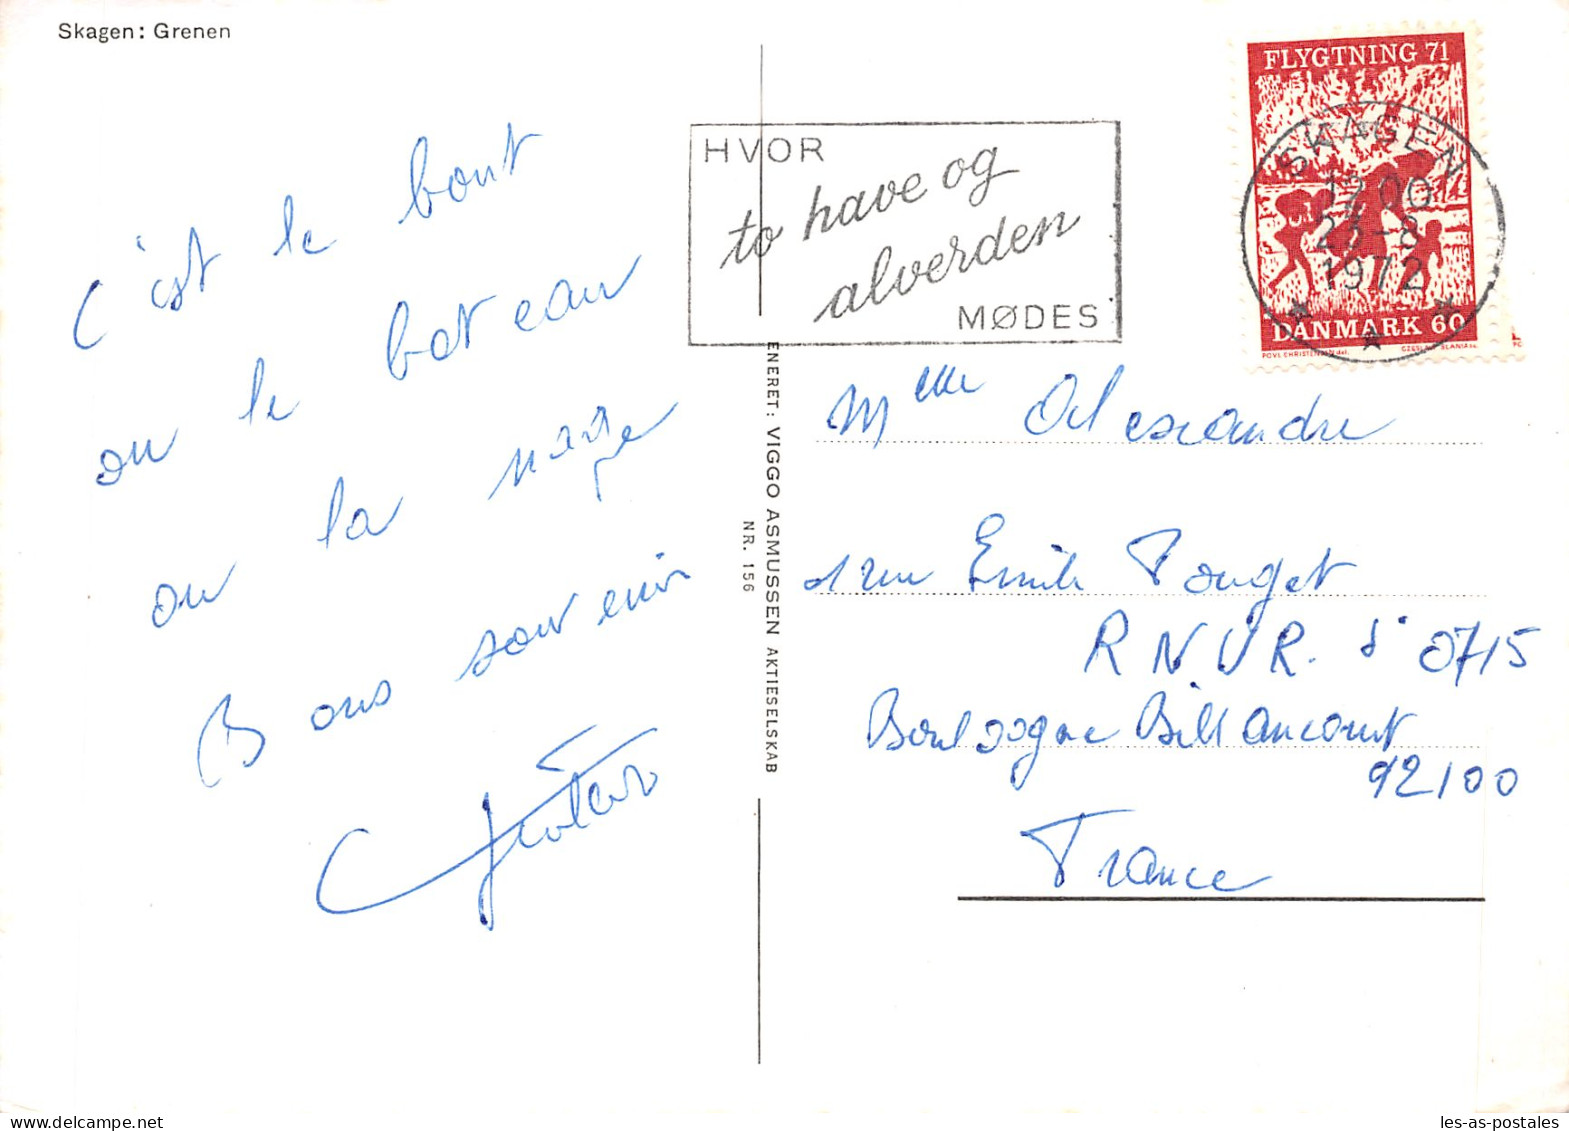 Skagen: Grenen
c'est le bout
ou le bateau
ou la nage
Bons souvenir
HVOR
to have og
alverden
MØDES
FLYGTNING 71
SKAGEN
12.00
23-8
1972
DANMARK 60
POVL CHRISTENSEN del.
CZESLAW SLANIA sc.
ENERET: VIGGO ASMUSSEN AKTIESELSKAB
NR. 156
Melle Alexandre
1 rue Emile Pouget
R.N.U.R. 0715
Boulogne Billancourt
92100
France
les-as-postales